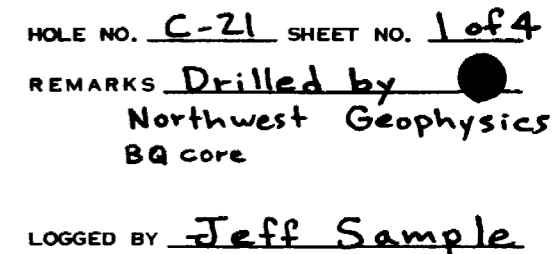 HOLE NO. C-21 SHEET NO. 1 of 4
REMARKS Drilled by
Northwest Geophysics
BQ core
LOGGED BY Jeff Sample